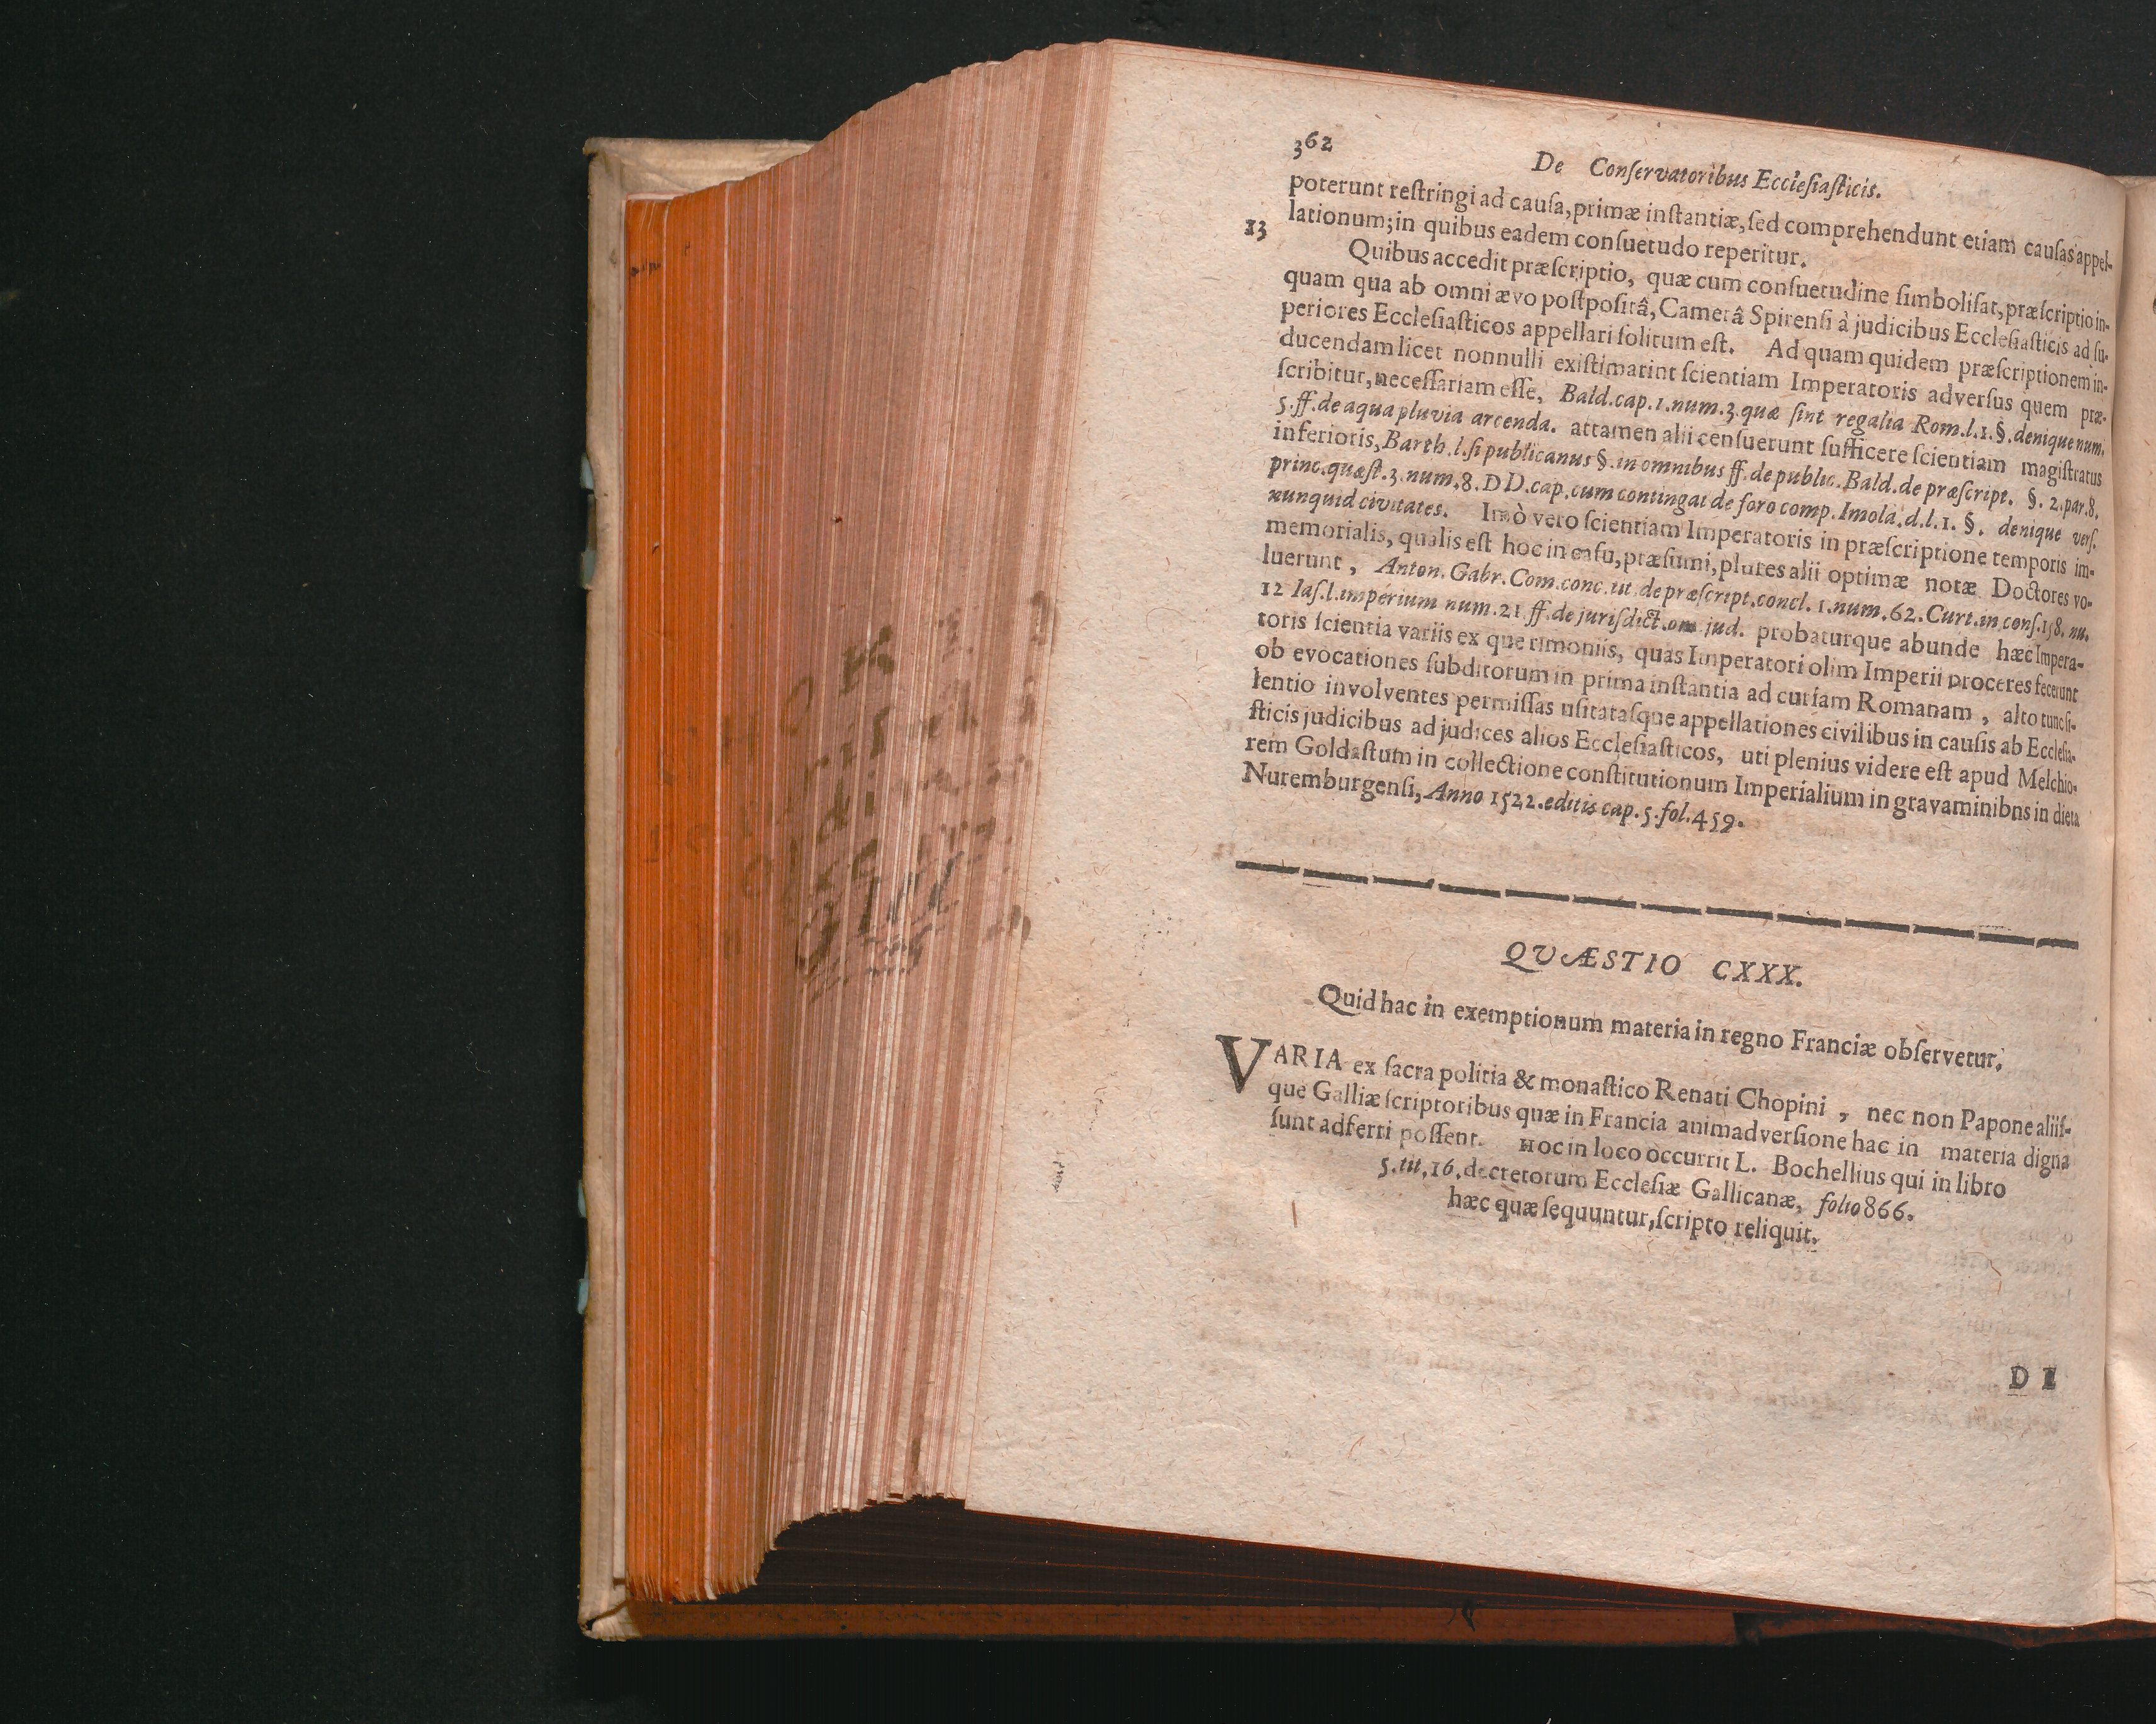 362
De Conſervatoribus Eccleſiaſticis.
poterunt reſtringi ad cauſa, primæ inſtantiæ, ſed comprehendunt etiam cauſas appel-
lationum; in quibus eadem conſuetudo reperitur.
13
Quibus accedit præſcriptio, quæ cum conſuetudine ſimboliſat, præſcriptio in-
quam qua ab omni ævo poſtpoſitâ, Camerâ Spirenſi à judicibus Eccleſiaſticis ad ſu-
periores Eccleſiaſticos appellari ſolitum eſt. Ad quam quidem præſcriptionem in-
ducendam licet nonnulli exiſtimarint ſcientiam Imperatoris adverſus quem præ-
ſcribitur, neceſſariam eſſe, Bald. cap. 1. num. 3. quæ ſint regalia Rom. l. 1. §. denique num.
5. ff. de aqua pluvia arcenda. attamen alii cenſuerunt ſufficere ſcientiam magiſtratus
inferioris, Barth. l. ſi publicanus §. in omnibus ff. de public. Bald. de præſcript. §. 2. par. 8.
princ. quæſt. 3. num. 8. DD. cap. cum contingat de foro comp. Imola. d. l. 1. §. denique verſ.
nunquid civitates. Imò vero ſcientiam Imperatoris in præſcriptione temporis im-
memorialis, qualis eſt hoc in caſu, præſumi, plures alii optimæ notæ Doctores vo-
luerunt, Anton. Gabr. Com. conc. tit. de præſcript. concl. 1. num. 62. Curt. in conſ. 158. nu.
12 Iaſ. l. imperium num. 21 ff. de juriſdict. om jud. probaturque abunde hæc Impera-
toris ſcientia variis ex querimoniis, quas Imperatori olim Imperii proceres fecerunt
ob evocationes ſubditorum in prima inſtantia ad curiam Romanam, alto tunc ſi-
lentio involventes permiſſas uſitataſque appellationes civilibus in cauſis ab Eccleſia-
ſticis judicibus ad judices alios Eccleſiaſticos, uti plenius videre eſt apud Melchio-
rem Goldaſtum in collectione conſtitutionum Imperialium in gravaminibns in dieta
Nuremburgenſi, Anno 1522. editis cap. 5. fol. 459.
QVÆSTIO CXXX.
Quid hac in exemptionum materia in regno Franciæ obſervetur.
VARIA ex ſacra politia & monaſtico Renati Chopini, nec non Papone aliiſ-
que Galliæ ſcriptoribus quæ in Francia animadverſione hac in materia digna
ſunt adferri poſſent. Hoc in loco occurrit L. Bochellius qui in libro
5. tit. 16. decretorum Eccleſiæ Gallicanæ, folio 866.
hæc quæ ſequuntur, ſcripto reliquit.
DE